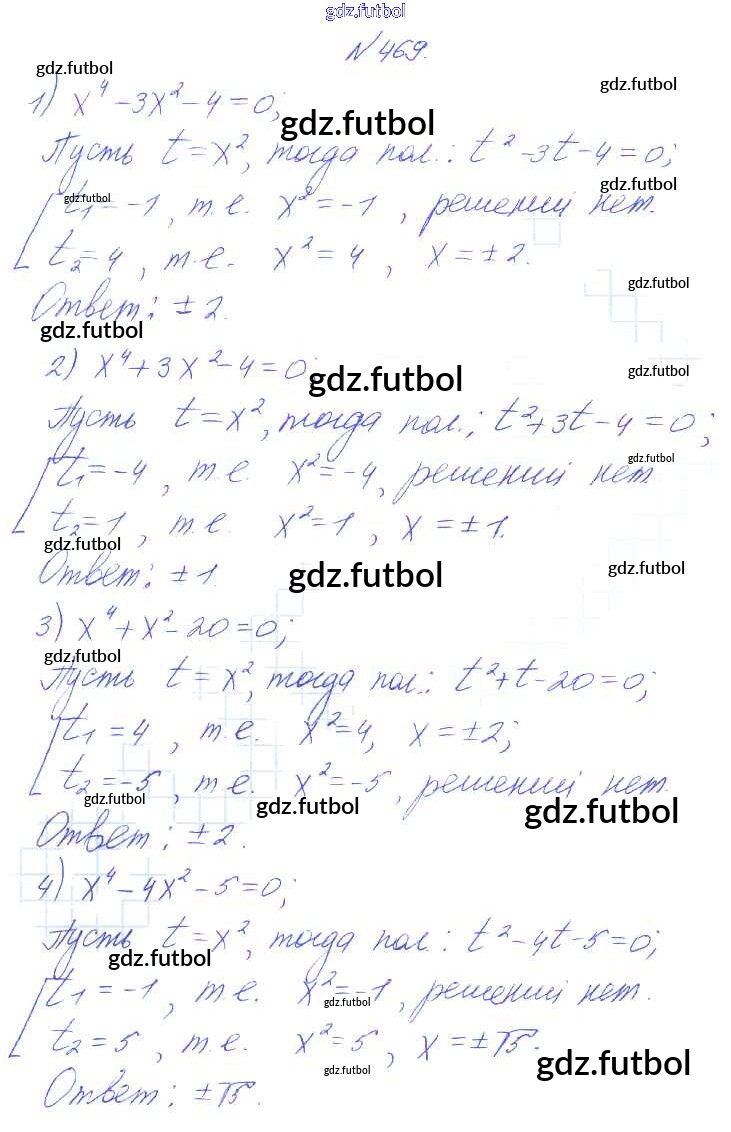 gdz.futbol
№469.
gdz.futbol
gdz.futbol
1) x⁴-3x²-4=0;
gdz.futbol
Пусть t=x², тогда пол.: t²-3t-4=0;
gdz.futbol
gdz.futbol
t₁=-1, т.е. x²=-1, решений нет.
t₂=4, т.е. x²=4, x=±2.
gdz.futbol
Ответ: ±2.
gdz.futbol
2) x⁴+3x²-4=0;
gdz.futbol
gdz.futbol
Пусть t=x², тогда пол.: t²+3t-4=0;
gdz.futbol
t₁=-4, т.е. x²=-4, решений нет.
t₂=1, т.е. x²=1, x=±1.
gdz.futbol
Ответ: ±1.
gdz.futbol
gdz.futbol
3) x⁴+x²-20=0;
gdz.futbol
Пусть t=x², тогда пол.: t²+t-20=0;
t₁=4, т.е. x²=4, x=±2;
t₂=-5, т.е. x²=-5, решений нет.
gdz.futbol
gdz.futbol
gdz.futbol
Ответ: ±2.
4) x⁴-4x²-5=0;
Пусть t=x², тогда пол.: t²-4t-5=0;
gdz.futbol
t₁=-1, т.е. x²=-1, решений нет.
gdz.futbol
t₂=5, т.е. x²=5, x=±√5.
gdz.futbol
gdz.futbol
Ответ: ±√5.